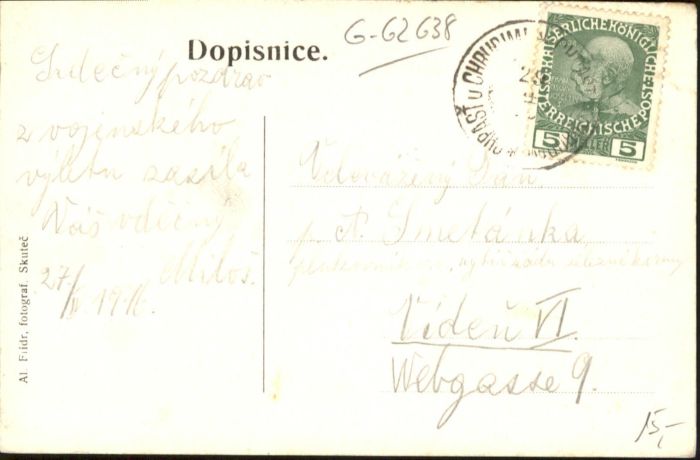 Dopisnice.
G-G2638
Srdečný pozdrav
z vojenského
výletu zasílá
Váš vděčný
Miloš.
27/ 1916.
Al Flidr, fotograf. Skuteč
CHRAST U CHRUDIMI
KAISERLICHE KÖNIGLICHE
ÖSTERREICHISCHE POST
5 HELLER 5
Velevážený Pan
p. A. Smetánka
Vídeň VI.
Webgasse 9.
15,-